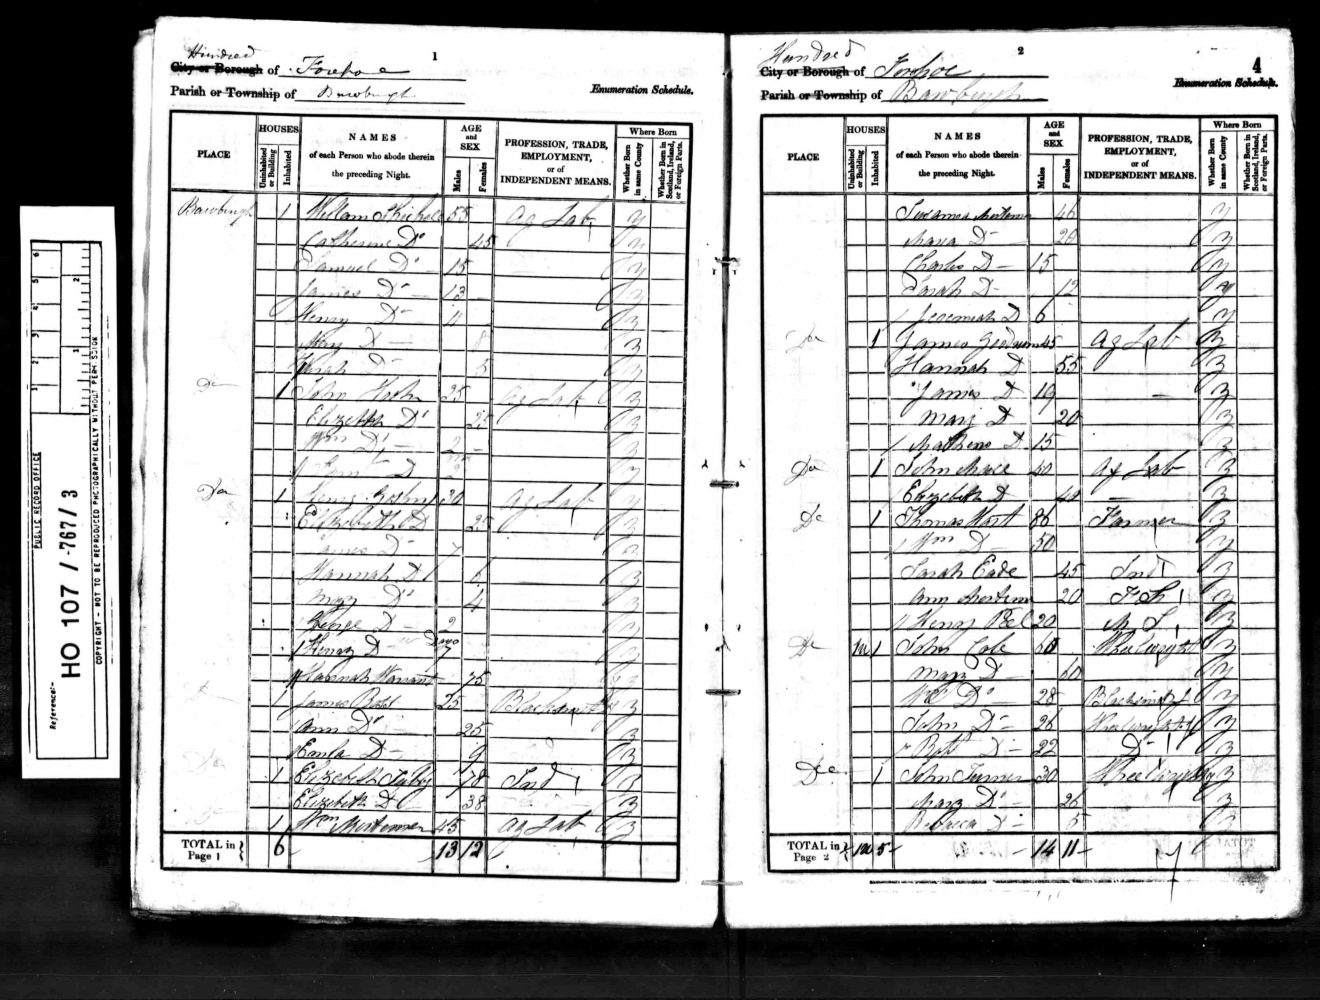 Hundred
City or Borough of Forehoe
Parish or Township of Bawburgh
1
Enumeration Schedule.
PLACE
HOUSES
Uninhabited or Building
Inhabited
NAMES
of each Person who abode therein
the preceding Night.
AGE
and
SEX
Males
Females
PROFESSION, TRADE,
EMPLOYMENT,
or of
INDEPENDENT MEANS.
Where Born
Whether Born in same County
Whether Born in Scotland, Ireland, or Foreign Parts.
Bawburgh 1 William 55 Ag Lab y
Catherine Do 45 y
Samuel Do 15 y
James Do 13 y
Henry Do 11 y
Mary D 8 y
Sarah D 5 y
Do 1 John 25 Ag Lab y
Elizabeth Do 25 y
Wm Do 2 y
D y
Do 1 30 Ag Lab y
Elizabeth D 25 y
James D 7 y
Hannah D 6 y
Mary Do 4 y
George D 2 y
Henry D 7 Days y
Hannah 75 y
1 James 25 Blacksmith y
Ann Do 25 y
D 9 y
Do 1 Elizabeth 78 Ind y
Elizabeth D 38 y
1 Wm Mortimer 45 Ag Lab y
TOTAL in Page 1 6 13 12
Hundred
City or Borough of Forehoe
Parish or Township of Bawburgh
2
4
Enumeration Schedule.
PLACE
HOUSES
Uninhabited or Building
Inhabited
NAMES
of each Person who abode therein
the preceding Night.
AGE
and
SEX
Males
Females
PROFESSION, TRADE,
EMPLOYMENT,
or of
INDEPENDENT MEANS.
Where Born
Whether Born in same County
Whether Born in Scotland, Ireland, or Foreign Parts.
Susanna Mortimer 46 y
Maria D 20 y
Charles D 15 y
Sarah D 12 y
Jeremiah D 6 y
Do 1 James 45 Ag Lab y
Hannah D 55 y
James D 19 y
Mary D 20 y
D 15 y
Do 1 John 40 Ag Lab y
Elizabeth D 40 y
Do 1 Thomas Hart 86 Farmer y
Wm D 50 y
Sarah Eade 45 Ind y
Ann Mortimer 20 F S y
Henry Peel 20 M S y
Do 1 John Cole 60 Wheelwright y
Mary D 60 y
Wm Do 28 Blacksmith y
John Do 26 Wheelwright y
Robt D 22 Do y
Do 1 John Turner 30 Wheelwright y
Mary Do 26 y
Rebecca D 5 y
TOTAL in Page 2 5 14 11
PUBLIC RECORD OFFICE
Reference:-
HO 107 / 767 / 3
COPYRIGHT - NOT TO BE REPRODUCED PHOTOGRAPHICALLY WITHOUT PERMISSION
1
2
3
4
5
6
1
2